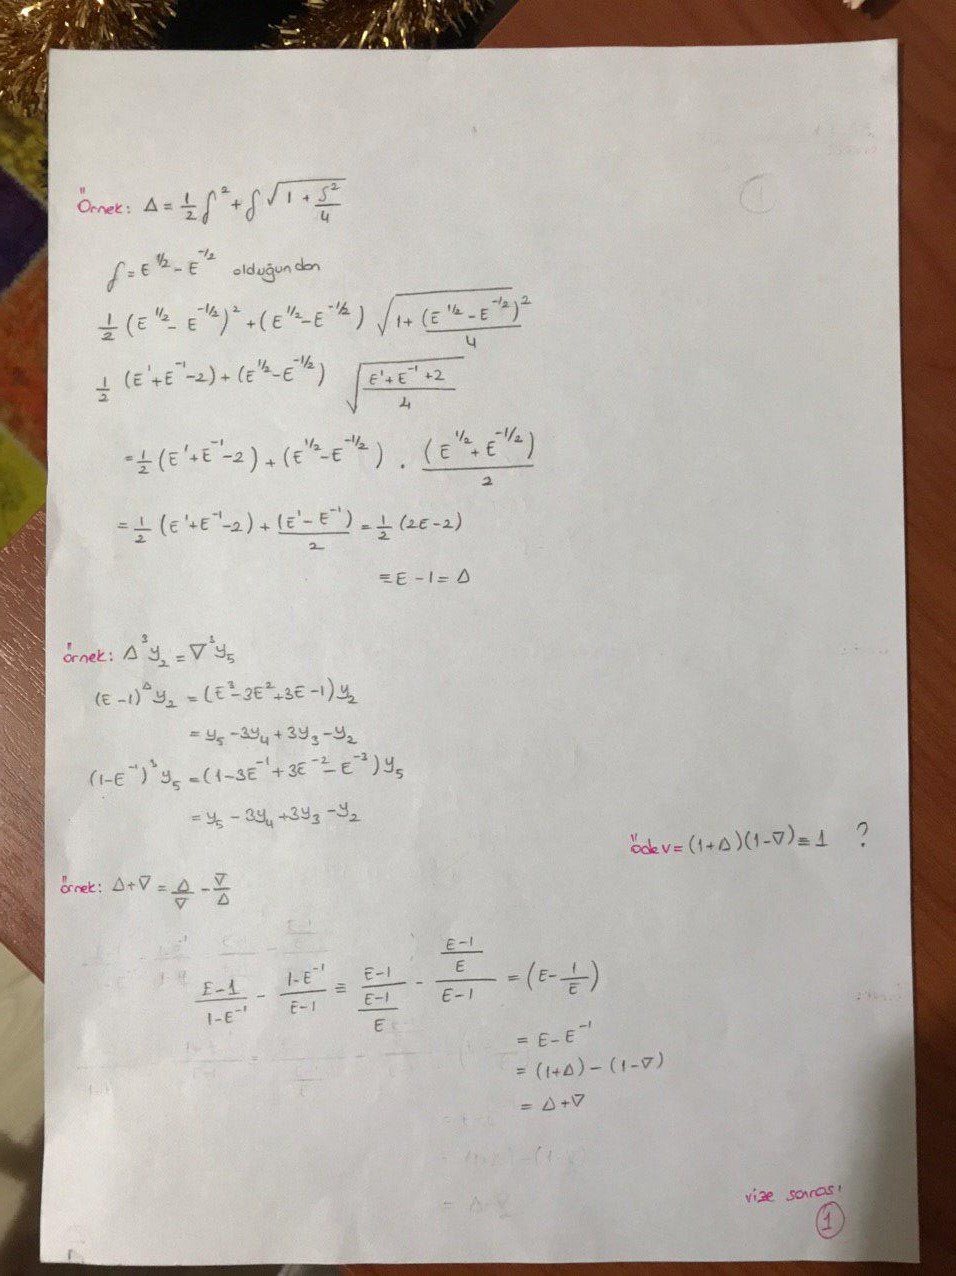 Örnek: Δ = 1/2 δ² + δ √(1 + δ²/4)
δ = E^{1/2} - E^{-1/2} olduğundan
1/2 (E^{1/2} - E^{-1/2})² + (E^{1/2} - E^{-1/2}) √(1 + (E^{1/2} - E^{-1/2})²/4)
1/2 (E' + E^{-1} - 2) + (E^{1/2} - E^{-1/2}) √((E' + E^{-1} + 2)/4)
= 1/2 (E' + E^{-1} - 2) + (E^{1/2} - E^{-1/2}) . (E^{1/2} + E^{-1/2})/2
= 1/2 (E' + E^{-1} - 2) + (E' - E^{-1})/2 = 1/2 (2E - 2)
≡ E - 1 = Δ
örnek: Δ³y₂ = ∇³y₅
(E - 1)^Δ y₂ = (E³ - 3E² + 3E - 1) y₂
= y₅ - 3y₄ + 3y₃ - y₂
(1 - E^{-1})³ y₅ = (1 - 3E^{-1} + 3E^{-2} - E^{-3}) y₅
= y₅ - 3y₄ + 3y₃ - y₂
ödev = (1+Δ)(1-∇) ≡ 1 ?
örnek: Δ + ∇ = Δ/∇ - ∇/Δ
(E-1)/(1-E^{-1}) - (1-E^{-1})/(E-1) ≡ (E-1)/((E-1)/E) - ((E-1)/E)/(E-1) = (E - 1/E)
= E - E^{-1}
= (1+Δ) - (1-∇)
= Δ + ∇
vize sorası
1